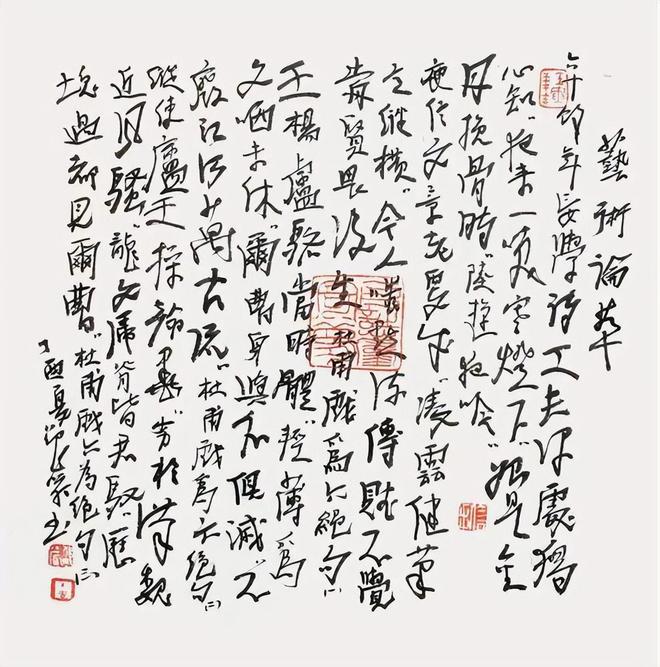 藝術論萃
六十年妄學詩工夫深處獨
心知"夜來一笑寒燈下"始是金
丹換骨時"陸遊夜吟"
庾信文章老更成"凌雲健筆
意縱橫"今人嗤點流傳賦不覺
前賢畏後生"杜甫戲為六絕句(一)
王楊盧駱當時體"輕薄為
文哂未休"爾曹身與名俱滅不
廢江河萬古流"杜甫戲為六絕句(二)
縱使盧王操翰墨"劣於漢魏
近風騷"龍文虎脊皆君馭"歷
塊過都見爾曹"杜甫戲六為絕句(三)
丁酉夏書